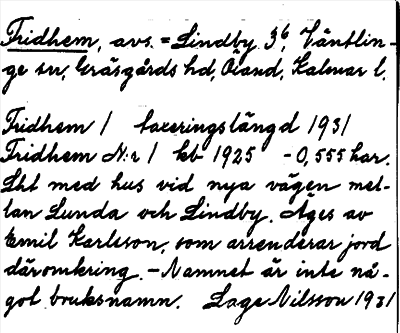 Fridhem, avs. = Lindby 3⁶, Väntlin-
ge sn, Gräsgårds hd, Öland, Kalmar l.
Fridhem / taxeringslängd 1931
Fridhem N:r 1 kb 1925 - 0,555 har.
Lht med hus vid nya vägen mel-
lan Lunda och Lindby. Äges av
Emil Karlsson, som arrenderar jord
däromkring. - Namnet är inte nå-
got bruksnamn. Lage Nilsson 1931